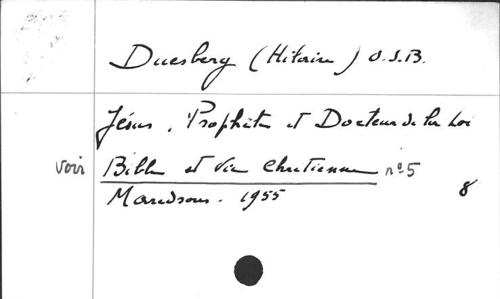 Duesberg (Hilaire) O.S.B.
Jésus, Prophète et Docteur de la Loi
voir Bible et Vie Chrétienne nº 5
Maredsous. 1955 8